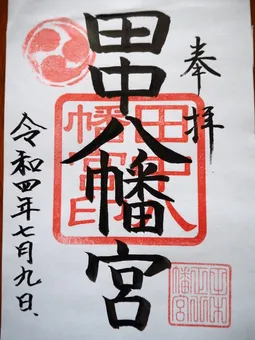 奉拝
田中八幡宮
令和四年七月九日
田中八幡宮印